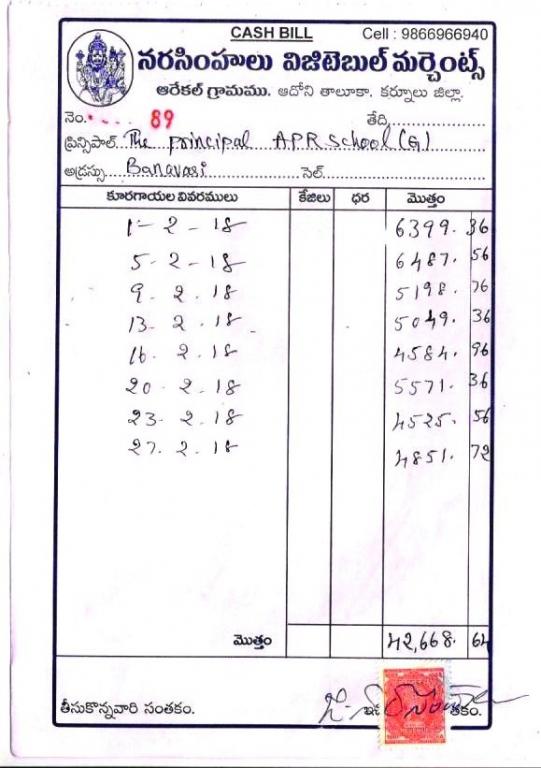 CASH BILL Cell : 9866966940
నరసింహులు విజిటెబుల్ మర్చెంట్స్
ఆరేకల్ గ్రామము. ఆదోని తాలూకా, కర్నూలు జిల్లా.
నెం. 89 తేది
ప్రిన్సిపాల్ The principal A.P.R School (G)
అడ్రస్సు Banavasi సెల్
కూరగాయల వివరములు కేజిలు ధర మొత్తం
1 - 2 - 18 6399. 36
5 - 2 - 18 6487. 56
9 . 2 . 18 5198. 76
13 . 2 . 18 5049. 36
16 . 2 . 18 4584. 96
20 . 2 . 18 5571. 36
23 . 2 . 18 4525. 56
27 . 2 . 18 4851. 72
మొత్తం 42,668. 64
తీసుకొన్నవారి సంతకం. ఇచ తకం.